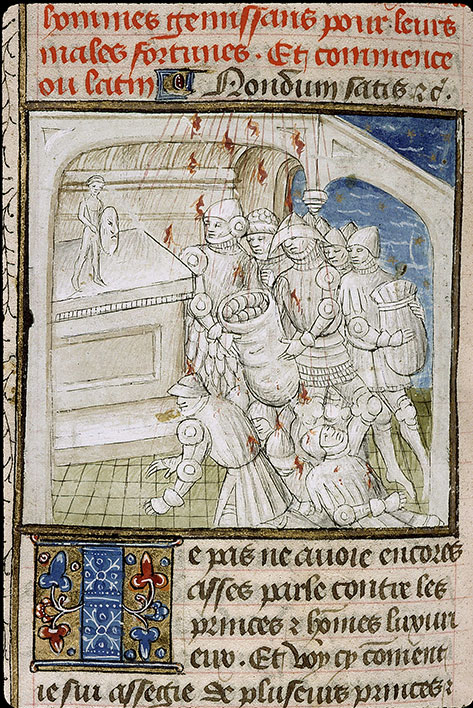 hommes gemissans pour leurs
males fortunes. Et commence
ou latin Nondum satis &c̃.
Ie pas ne avoie encores
asses parle contre les
princes ⁊ hões luxuri
eux. Et voy cy cõment
ie sui assegie de plusieurs princes ⁊